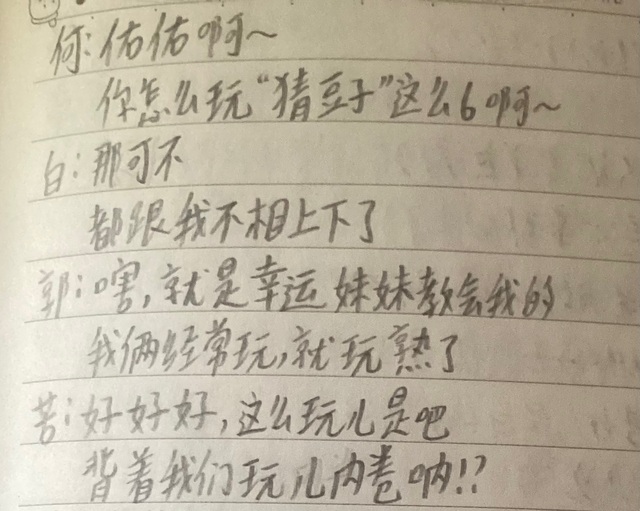 何:佑佑啊~
你怎么玩“猜豆子”这么6啊~
白:那可不
都跟我不相上下了
郭:嗐,就是幸运妹妹教会我的
我俩经常玩,就玩熟了
苦:好好好,这么玩儿是吧
背着我们玩儿内卷呐!?